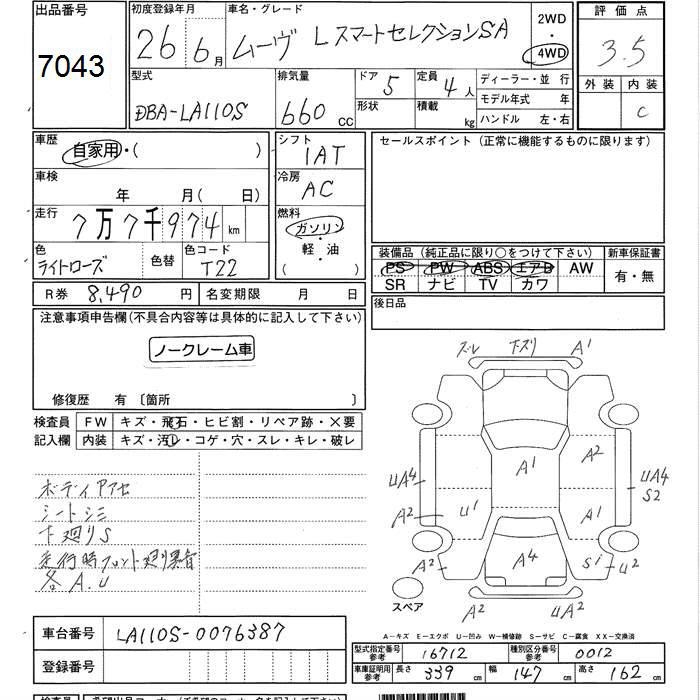 出品番号
7043
初度登録年月
26 6月
車名・グレード
ムーヴ Lスマートセレクション SA
2WD
・
4WD
評価点
3.5
外装 内装
C
型式
DBA-LA110S
排気量
660 CC
ドア 5
形状
定員 4人
積載 kg
ディーラー・並行
モデル年式 年
ハンドル 左・右
車歴
自家用・( )
シフト
IAT
セールスポイント(正常に機能するものに限ります)
車検
年 月(日)
冷房
AC
走行
7万7千974km
燃料
ガソリン
・
軽・油
( )
色
ライトローズ
色替
色コード
T22
装備品(純正品に限り○をつけて下さい)
PS PW ABS エアB AW
SR ナビ TV カワ
新車保証書
有・無
R券 8,490 円
名変期限 月 日
後日品
注意事項申告欄(不具合内容等は具体的に記入して下さい)
ノークレーム車
修復歴 有 〔箇所 〕
検査員
記入欄
FW キズ・飛石・ヒビ割・リペア跡・×要
内装 キズ・汚レ・コゲ・穴・スレ・キレ・破レ
ボディアアセ
シートシミ
下廻りS
走行時フロント廻り異音
各A.U
ズレ 下ズリ A1
A1
A2
UA4
UA4
S2
A2
U1
A1
A2
A4
Si U2
A2
UA2
スペア
A-キズ E-エクボ U-凹み W-補修跡 S-サビ C-腐食 XX-交換済
車台番号 LA110S-0076387
登録番号
型式指定番号
参考
16712
種別区分番号
参考
0012
車庫証明用
参考
長さ 339 cm 幅 147 cm 高さ 162 cm